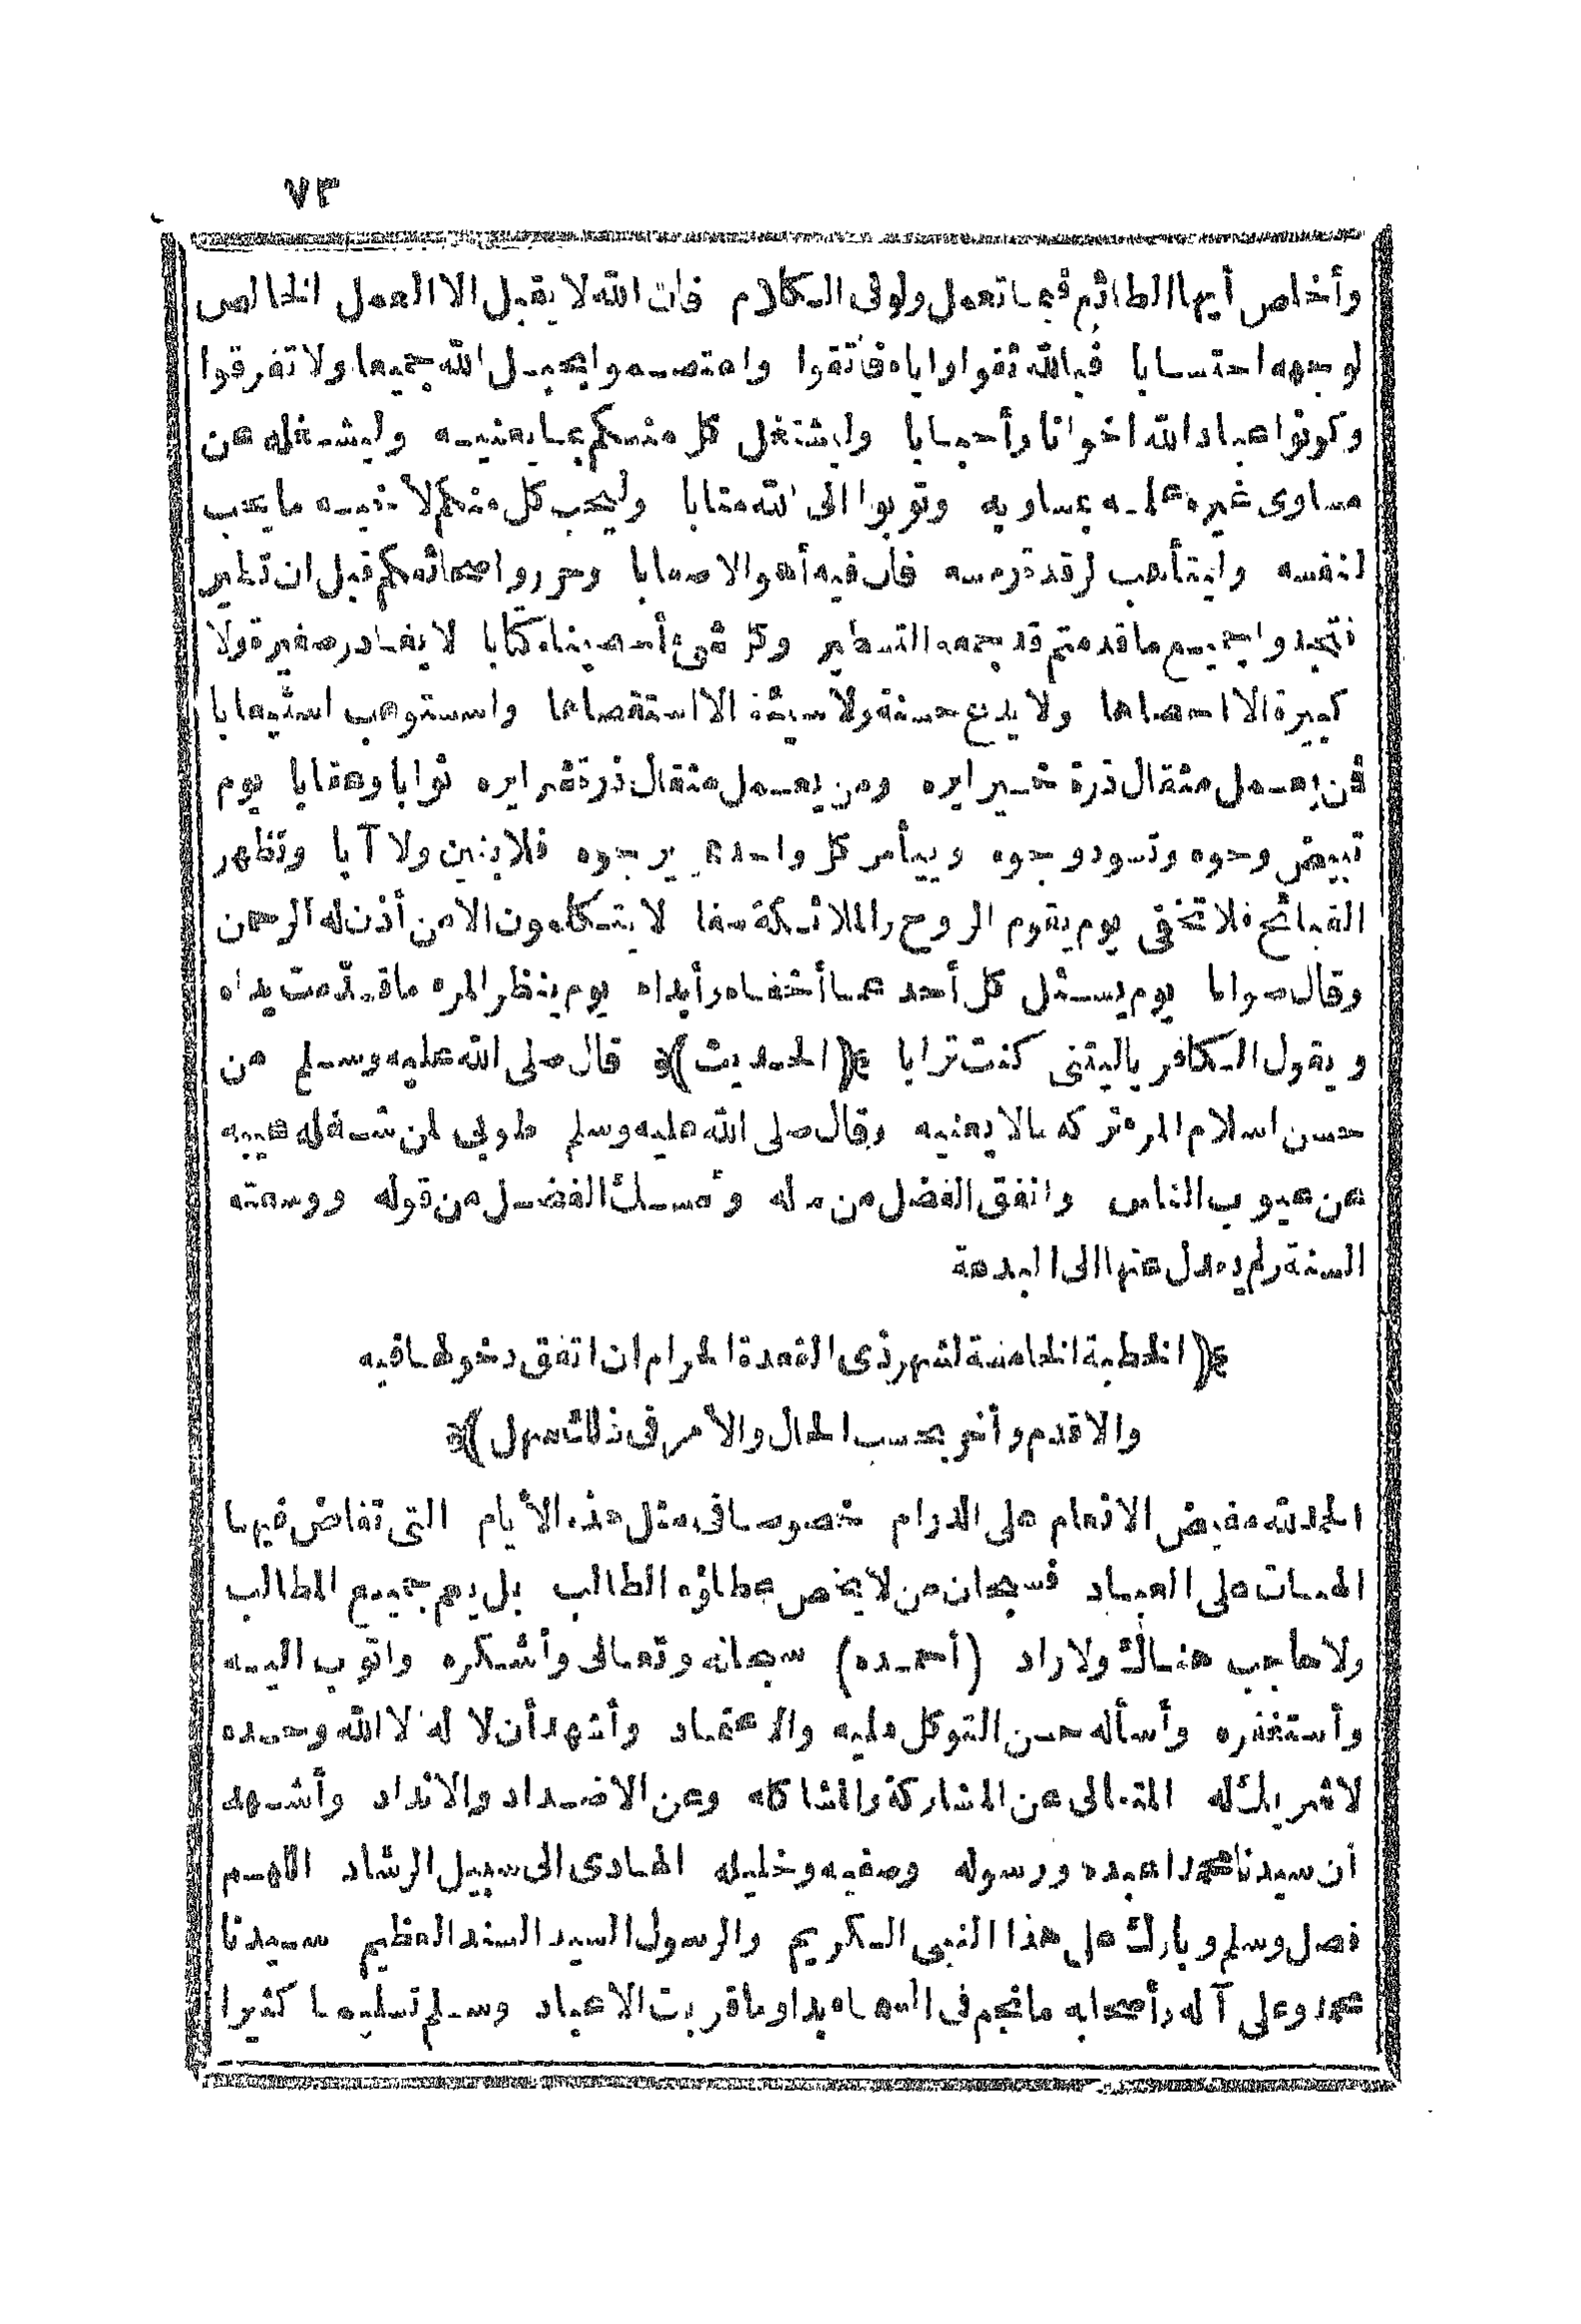 ٧٣
وأخلص أيها الطائع فيما تعمل ولو فى الكلام فان الله لا يقبل الا العمل الخالص
لوجهه احتسابا فبالله ثقوا واياه فاتقوا واعتصموا بحبل الله جميعا ولا تفرقوا
وكونوا عباد الله اخوانا وأحبابا وليشتغل كل منكم بما يعنيه وليشغله عن
مساوى غيره علمه بمساويه وتوبوا الى الله متابا وليحب كل منكم لأخيه ما يحب
لنفسه وليتأهب لرقدة رمسه فان فيه أهوالا صعابا وحرروا صحائفكم قبل ان تطير
فتجدوا جميع ما قدمتم قد جمعه التسطير وكل شئ أحصيناه كتابا لا يغادر صغيرة ولا
كبيرة الا احصاها ولا يدع حسنة ولا سيئة الا استقصاها واستوهب استيعابا
فمن يعمل مثقال ذرة خيرا يره ومن يعمل مثقال ذرة شرا يره ثوابا وعقابا يوم
تبيض وجوه وتسود وجوه وييأس كل واحد ممن يرجوه فلا بنين ولا آبا وتظهر
القبائح فلا تخفى يوم يقوم الروح والملائكة صفا لا يتكلمون الا من أذن له الرحمن
وقال صوابا يوم يسئل كل أحد عما أخفاه وأبداه يوم ينظر المرء ما قدّمت يداه
ويقول الكافر ياليتنى كنت ترابا ﴿(الحديث)﴾ قال صلى الله عليه وسلم من
حسن اسلام المرء تركه مالا يعنيه وقال صلى الله عليه وسلم طوبى لمن شغله عيبه
عن عيوب الناس وانفق الفضل من ماله وأمسك الفضل من قوله ووسعته
السنة ولم يعدل عنها الى البدعة
﴿(الخطبة الخامسة لشهر ذى القعدة الحرام ان اتفق دخولها فيه
والا قدم وأخر بحسب الحال والأمر فى ذلك سهل)﴾
الحمد لله مفيض الانعام على الدوام خصوصا فى مثل هذه الأيام التى تفاض فيها
الهبات على العباد فسبحان من لا يخص عطاؤه الطالب بل يعم جميع المطالب
ولا حاجب هناك ولا راد (أحمده) سبحانه وتعالى وأشكره واتوب اليه
وأستغفره وأسأله حسن التوكل عليه والاعتماد وأشهد أن لا اله الا الله وحده
لا شريك له المتعالى عن المشاركة والمشاكله وعن الاضداد والانداد وأشهد
أن سيدنا محمدا عبده ورسوله وصفيه وخليله الهادى الى سبيل الرشاد اللهم
فصل وسلم وبارك على هذا النبى الكريم والرسول السيد السند العظيم سيدنا
محمد وعلى آله وأصحابه ما نجم فى السماء بدا وما قربت الاعياد وسلم تسليما كثيرا